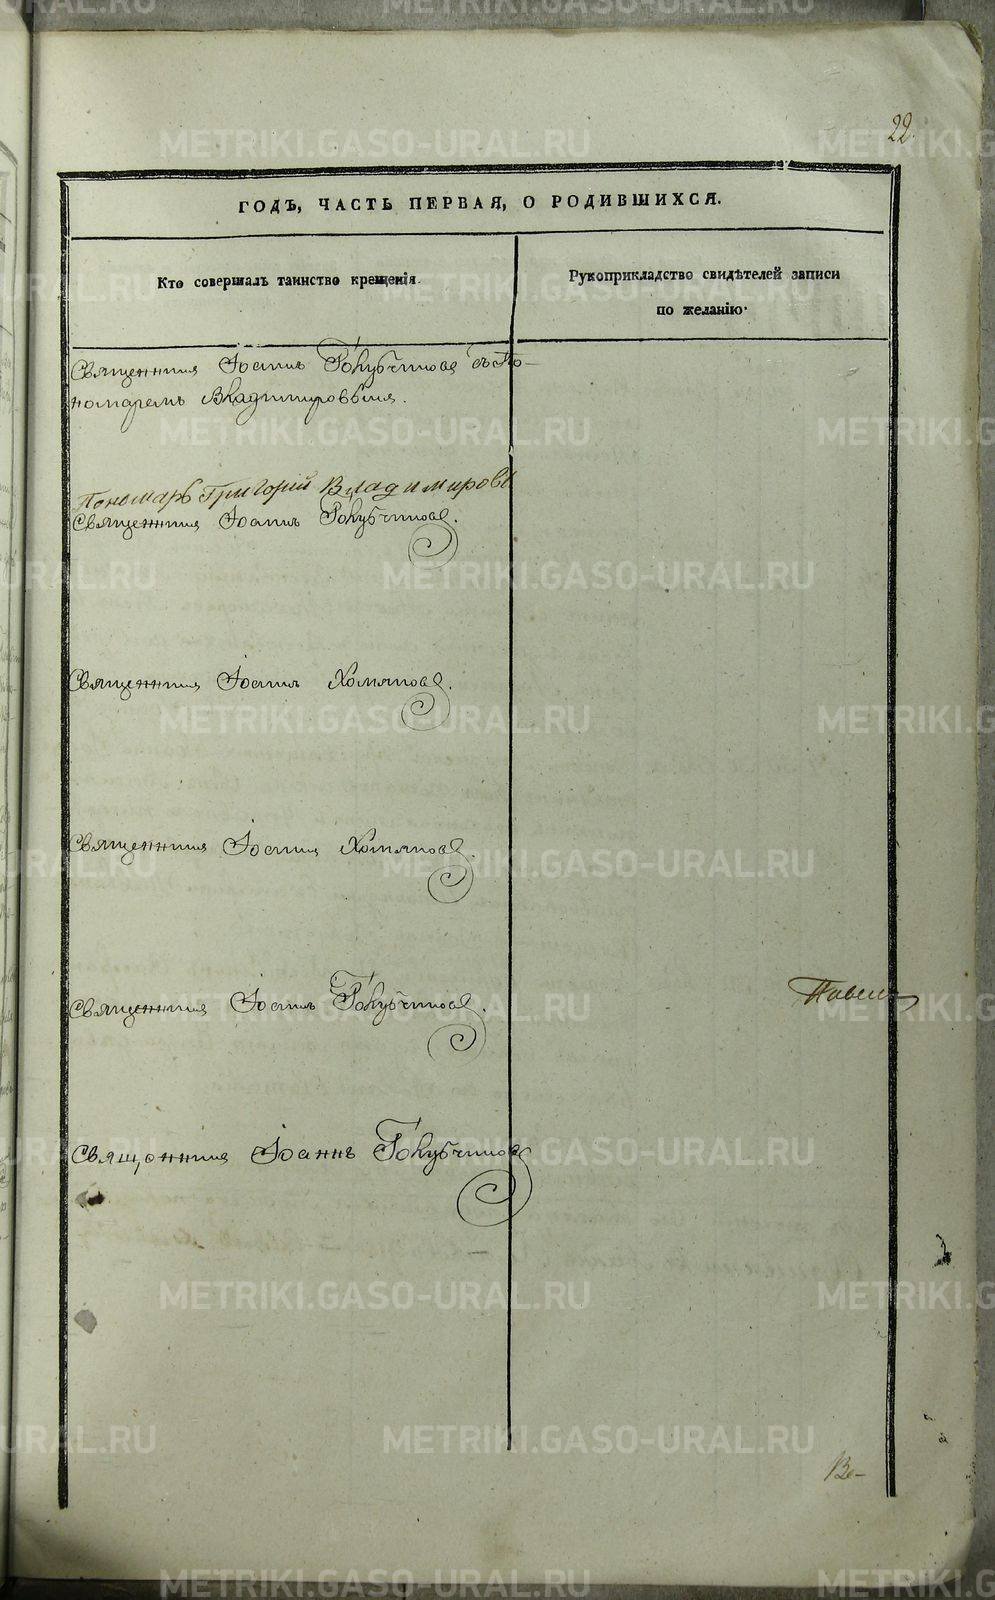 22.
ГОДЪ, ЧАСТЬ ПЕРВАЯ, О РОДИВШИХСЯ.
Кто совершалъ таинство крещенія.
Рукоприкладство свидѣтелей записи
по желанію.
Священникъ Іоаннъ Голубчиковъ съ По-
номаремъ Владимировымъ.
Пономарь Григорій Владимировъ
Священникъ Іоаннъ Голубчиковъ.
Священникъ Іоаннъ Хомяковъ.
Священникъ Іоаннъ Хомяковъ.
Священникъ Іоаннъ Голубчиковъ.
Павелъ
Священникъ Іоаннъ Голубчиковъ
Ве-
METRIKI.GASO-URAL.RU